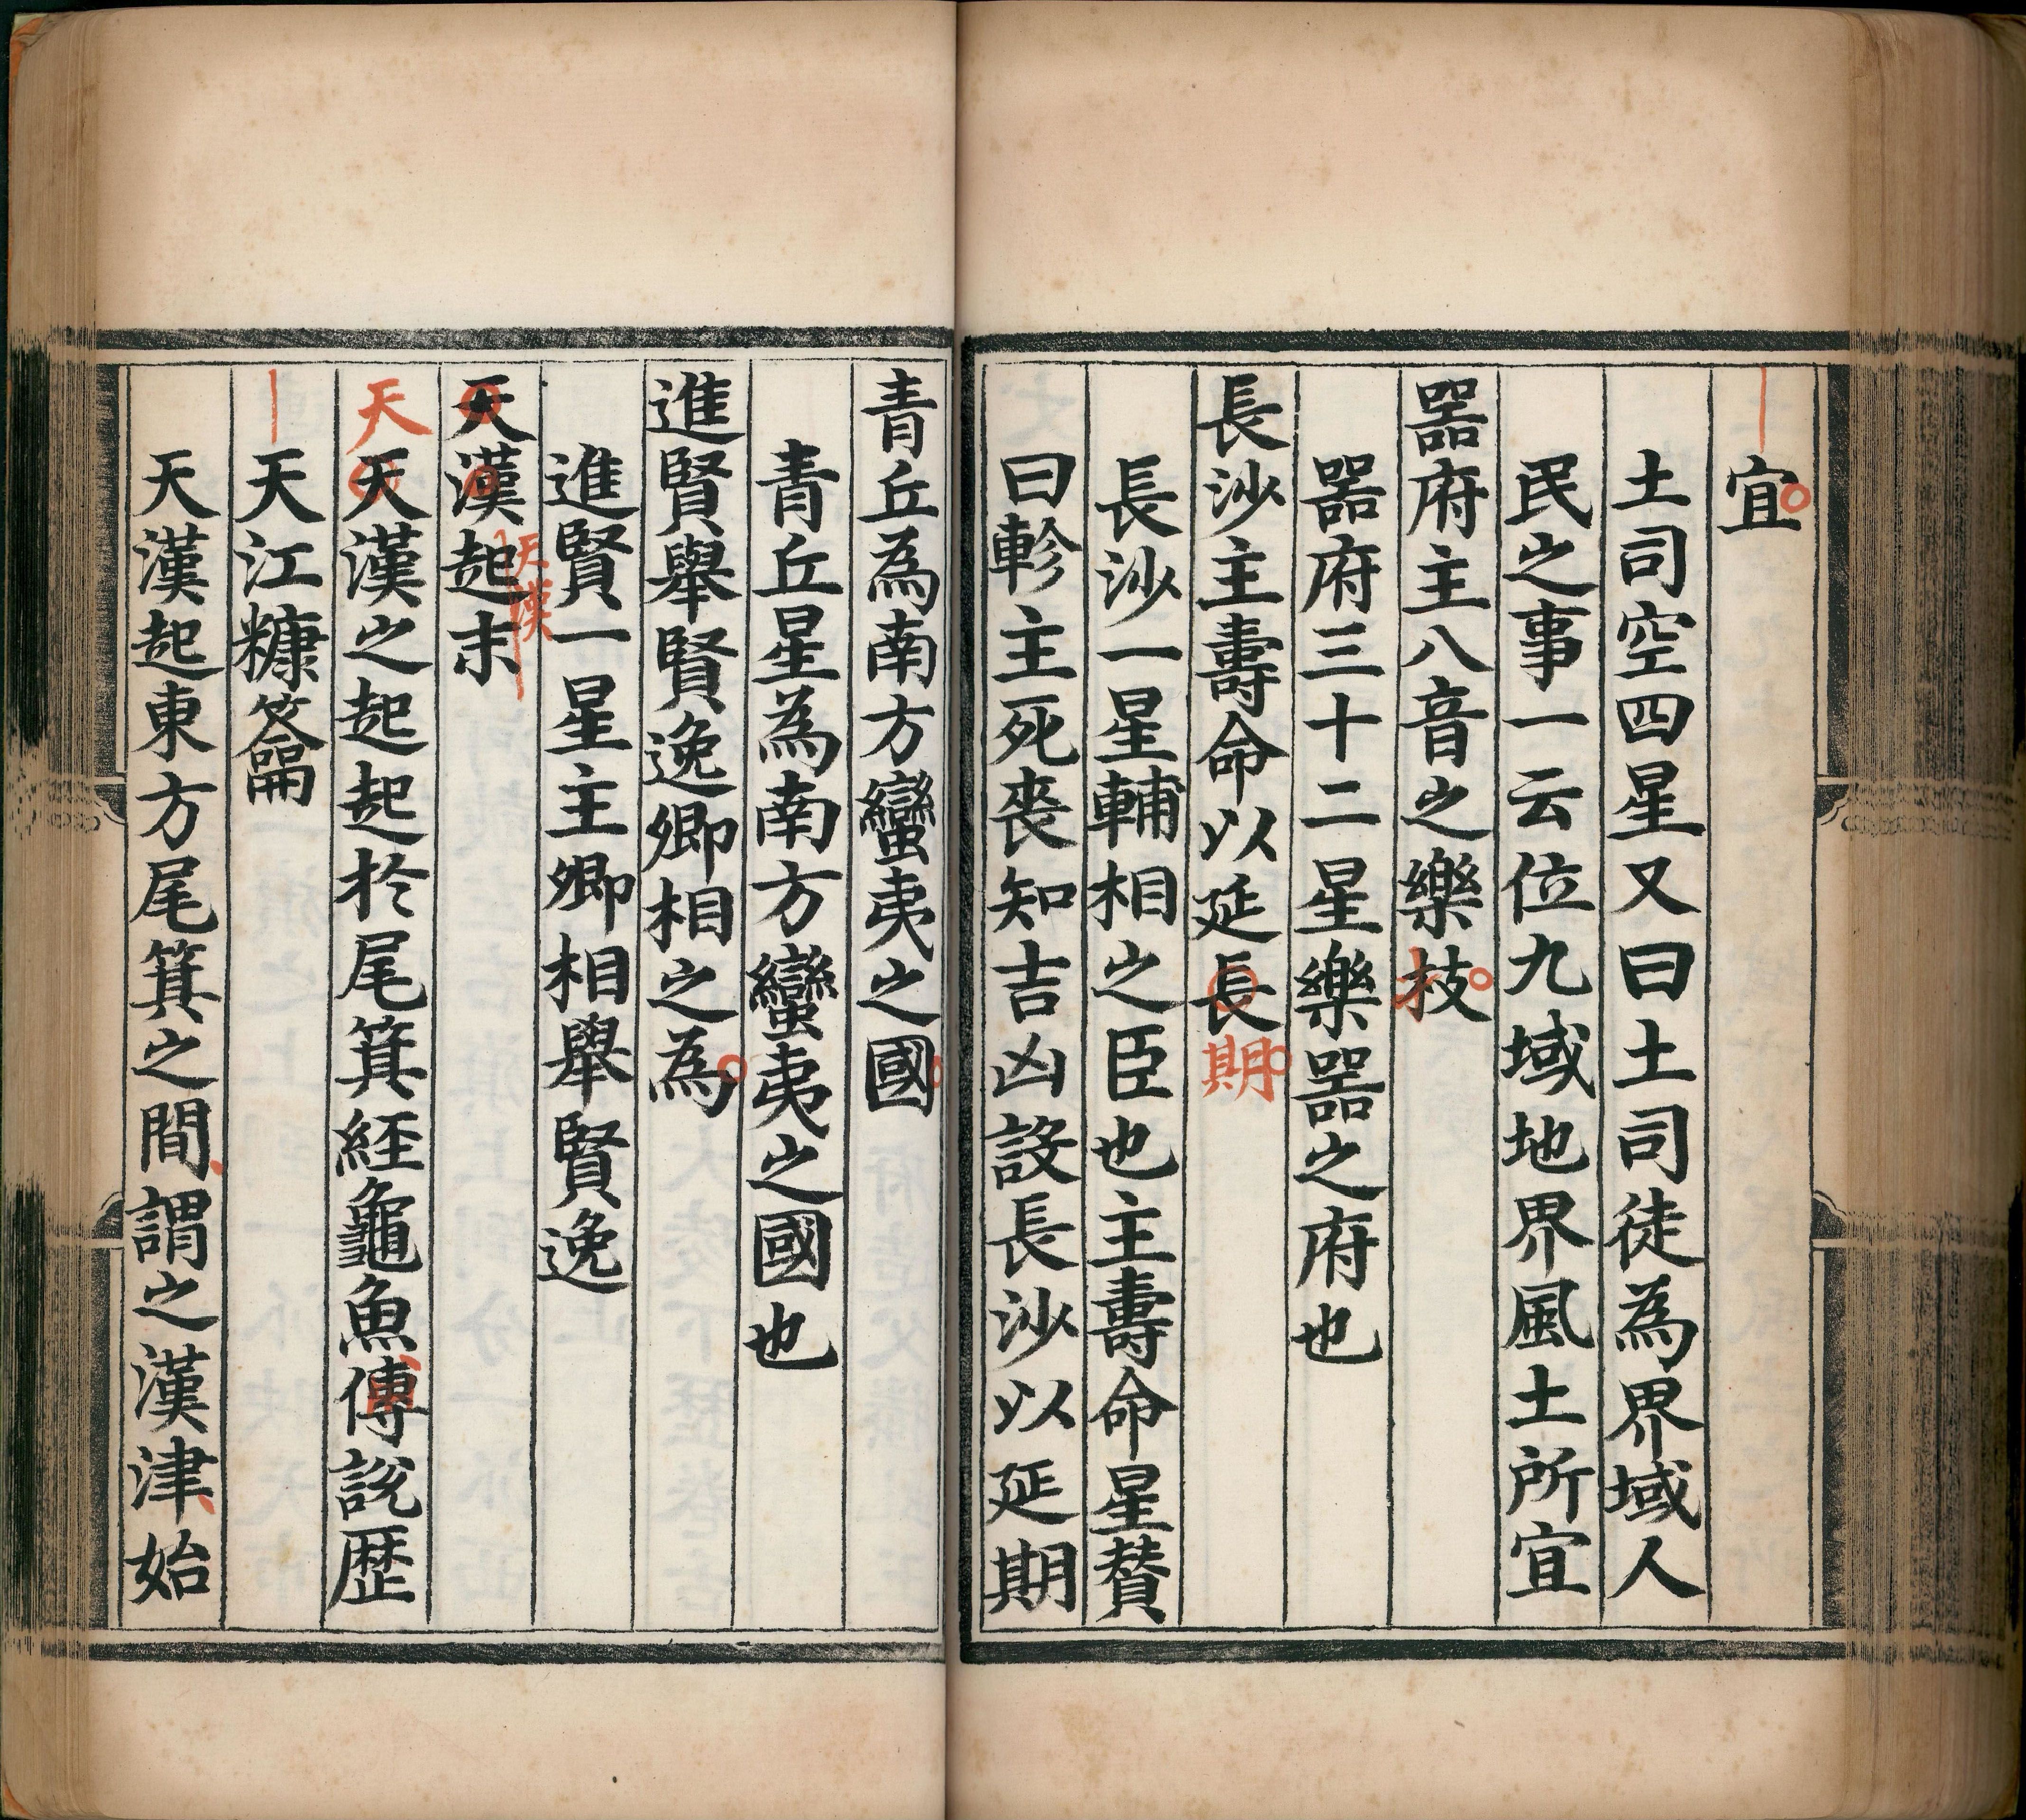 宜
土司空四星又曰土司徒為界域人
民之事一云位九域地界風土所宜
器府主八音之樂枝
器府三十二星樂器之府也
長沙主壽命以延長期
長沙一星輔相之臣也主壽命星賛
曰軫主死喪知吉凶設長沙以延期
青丘為南方蠻夷之國
青丘星為南方蠻夷之國也
進賢舉賢逸卿相之為
進賢一星主卿相舉賢逸
天漢起末
天漢
天
天漢之起起於尾箕経龜魚傅說歴
天江糠籥
天漢起東方尾箕之間謂之漢津始